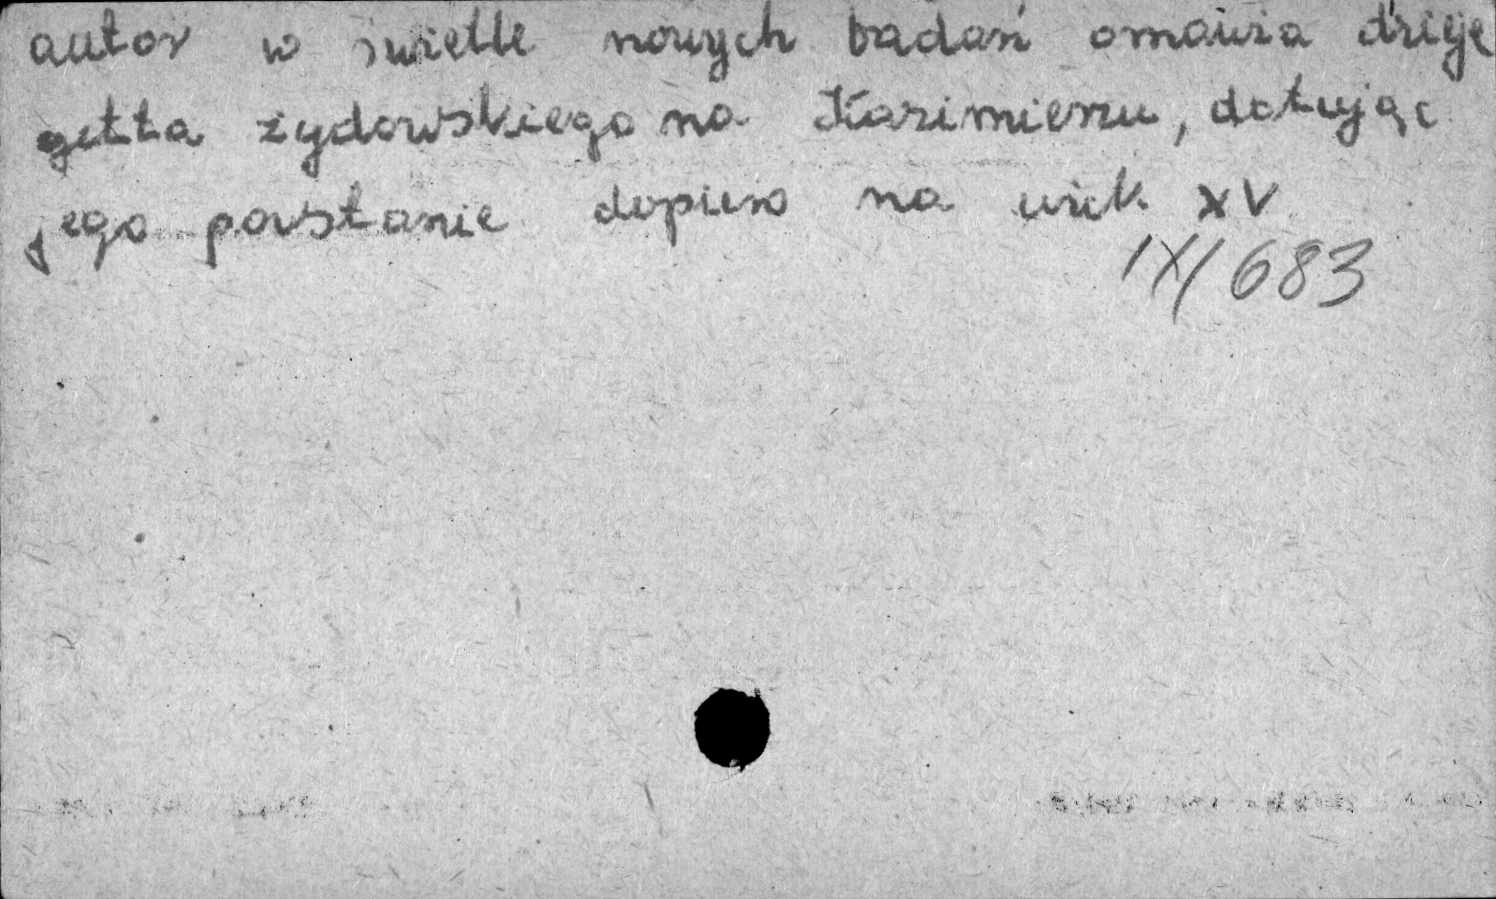 autor w świetle nowych badań omawia dzieje
getta żydowskiego na Kazimierzu, datując
jego powstanie dopiero na wiek XV
IX/683